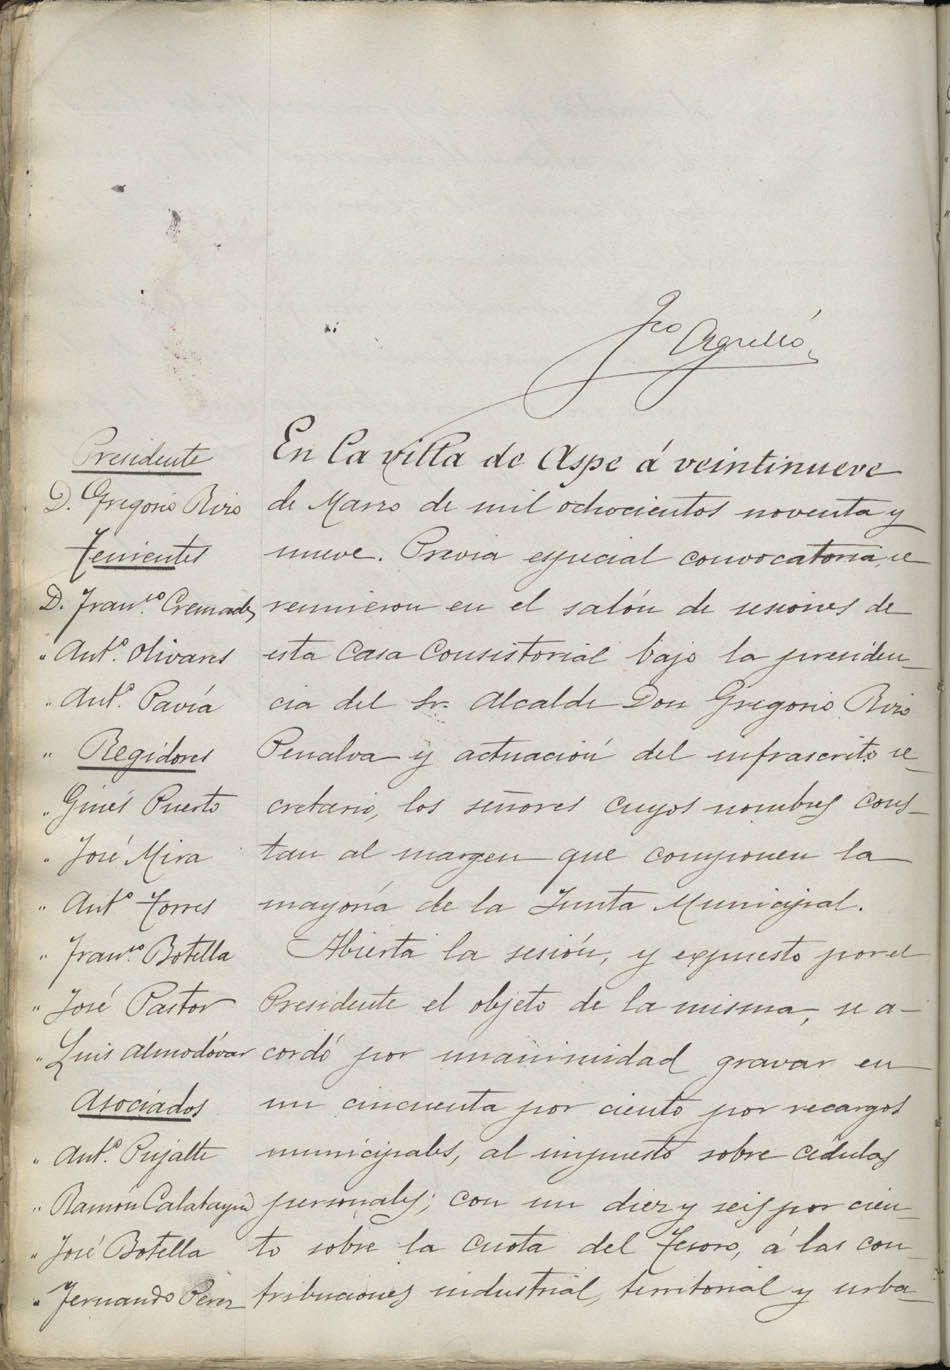 Fco Agulló
Presidente
D. Gregorio Rizo
Tenientes
D. Fran.co Cremades
" Ant.o Olivares
" Ant.o Pavía
" Regidores
" Ginés Puerto
" José Mira
" Ant.o Torres
" Fran.co Botella
" José Pastor
" Luis Almodóvar
Asociados
" Ant.o Pujalte
" Ramón Calatayud
" José Botella
" Fernando Pérez
En la villa de Aspe á veintinueve
de Marzo de mil ochocientos noventa y
nueve. Previa especial convocatoria, se
reunieron en el salón de sesiones de
esta Casa Consistorial bajo la presiden-
cia del Sr. Alcalde Don Gregorio Rizo
Penalva y actuación del infrascrito se-
cretario, los señores cuyos nombres cons-
tan al margen que componen la
mayoría de la Junta Municipal.
Abierta la sesión, y expuesto por el
Presidente el objeto de la misma, se a-
cordó por unanimidad gravar en
un cincuenta por ciento por recargos
municipales, al impuesto sobre cédulas
personales; con un diez y seis por cien-
to sobre la cuota del Tesoro, á las con-
tribuciones industrial, territorial y urba-